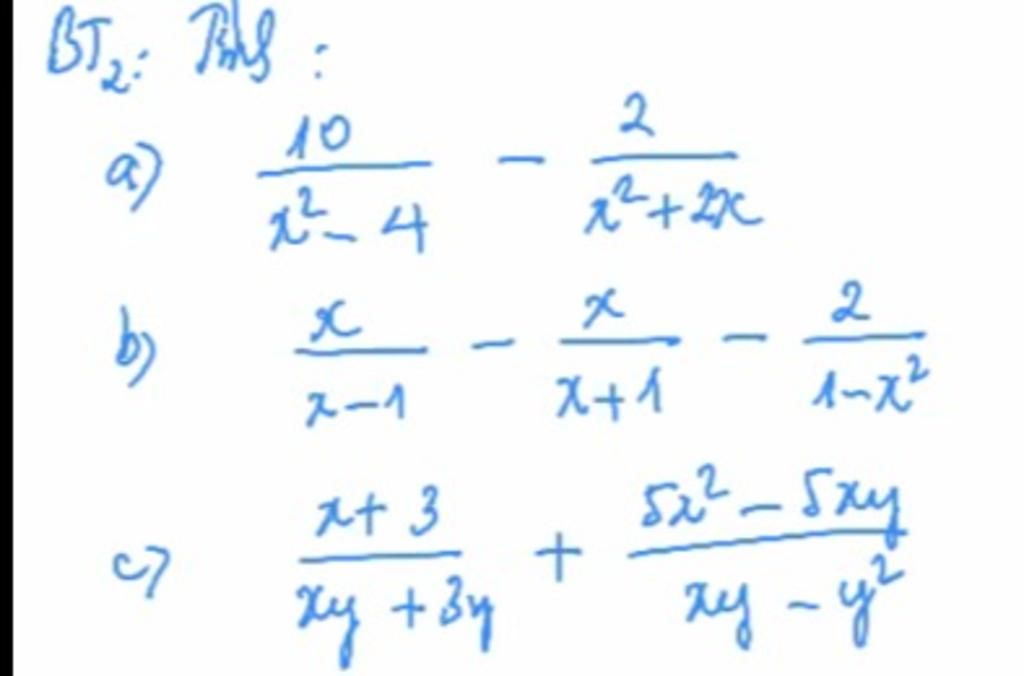 BT₂: Tính :
a) 10/(x² - 4) - 2/(x² + 2x)
b) x/(x - 1) - x/(x + 1) - 2/(1 - x²)
c) (x + 3)/(xy + 3y) + (5x² - 5xy)/(xy - y²)